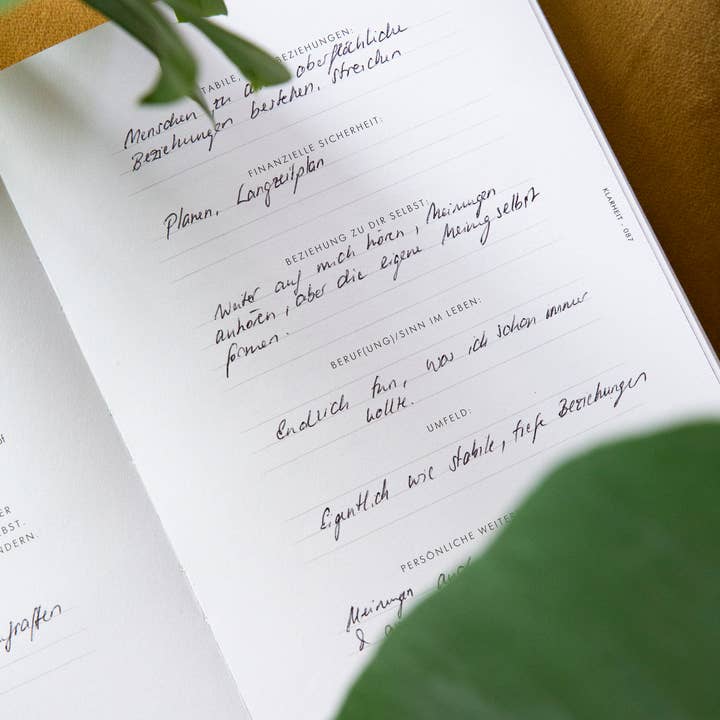 TABILE, BEZIEHUNGEN:
Menschen zu oberflächliche
Beziehungen bestehen, streichen
FINANZIELLE SICHERHEIT:
Planen, Langzeitplan
BEZIEHUNG ZU DIR SELBST:
Weiter auf mich hören, Meinungen
anhören, aber die eigene Meinung selbst
formen.
BERUF(UNG)/SINN IM LEBEN:
Endlich tun, was ich schon immer
wollte.
UMFELD:
Eigentlich wie stabile, tiefe Beziehungen
PERSÖNLICHE WEITER
Meinungen
&
KLARHEIT · 087
ER
BST.
NDERN.